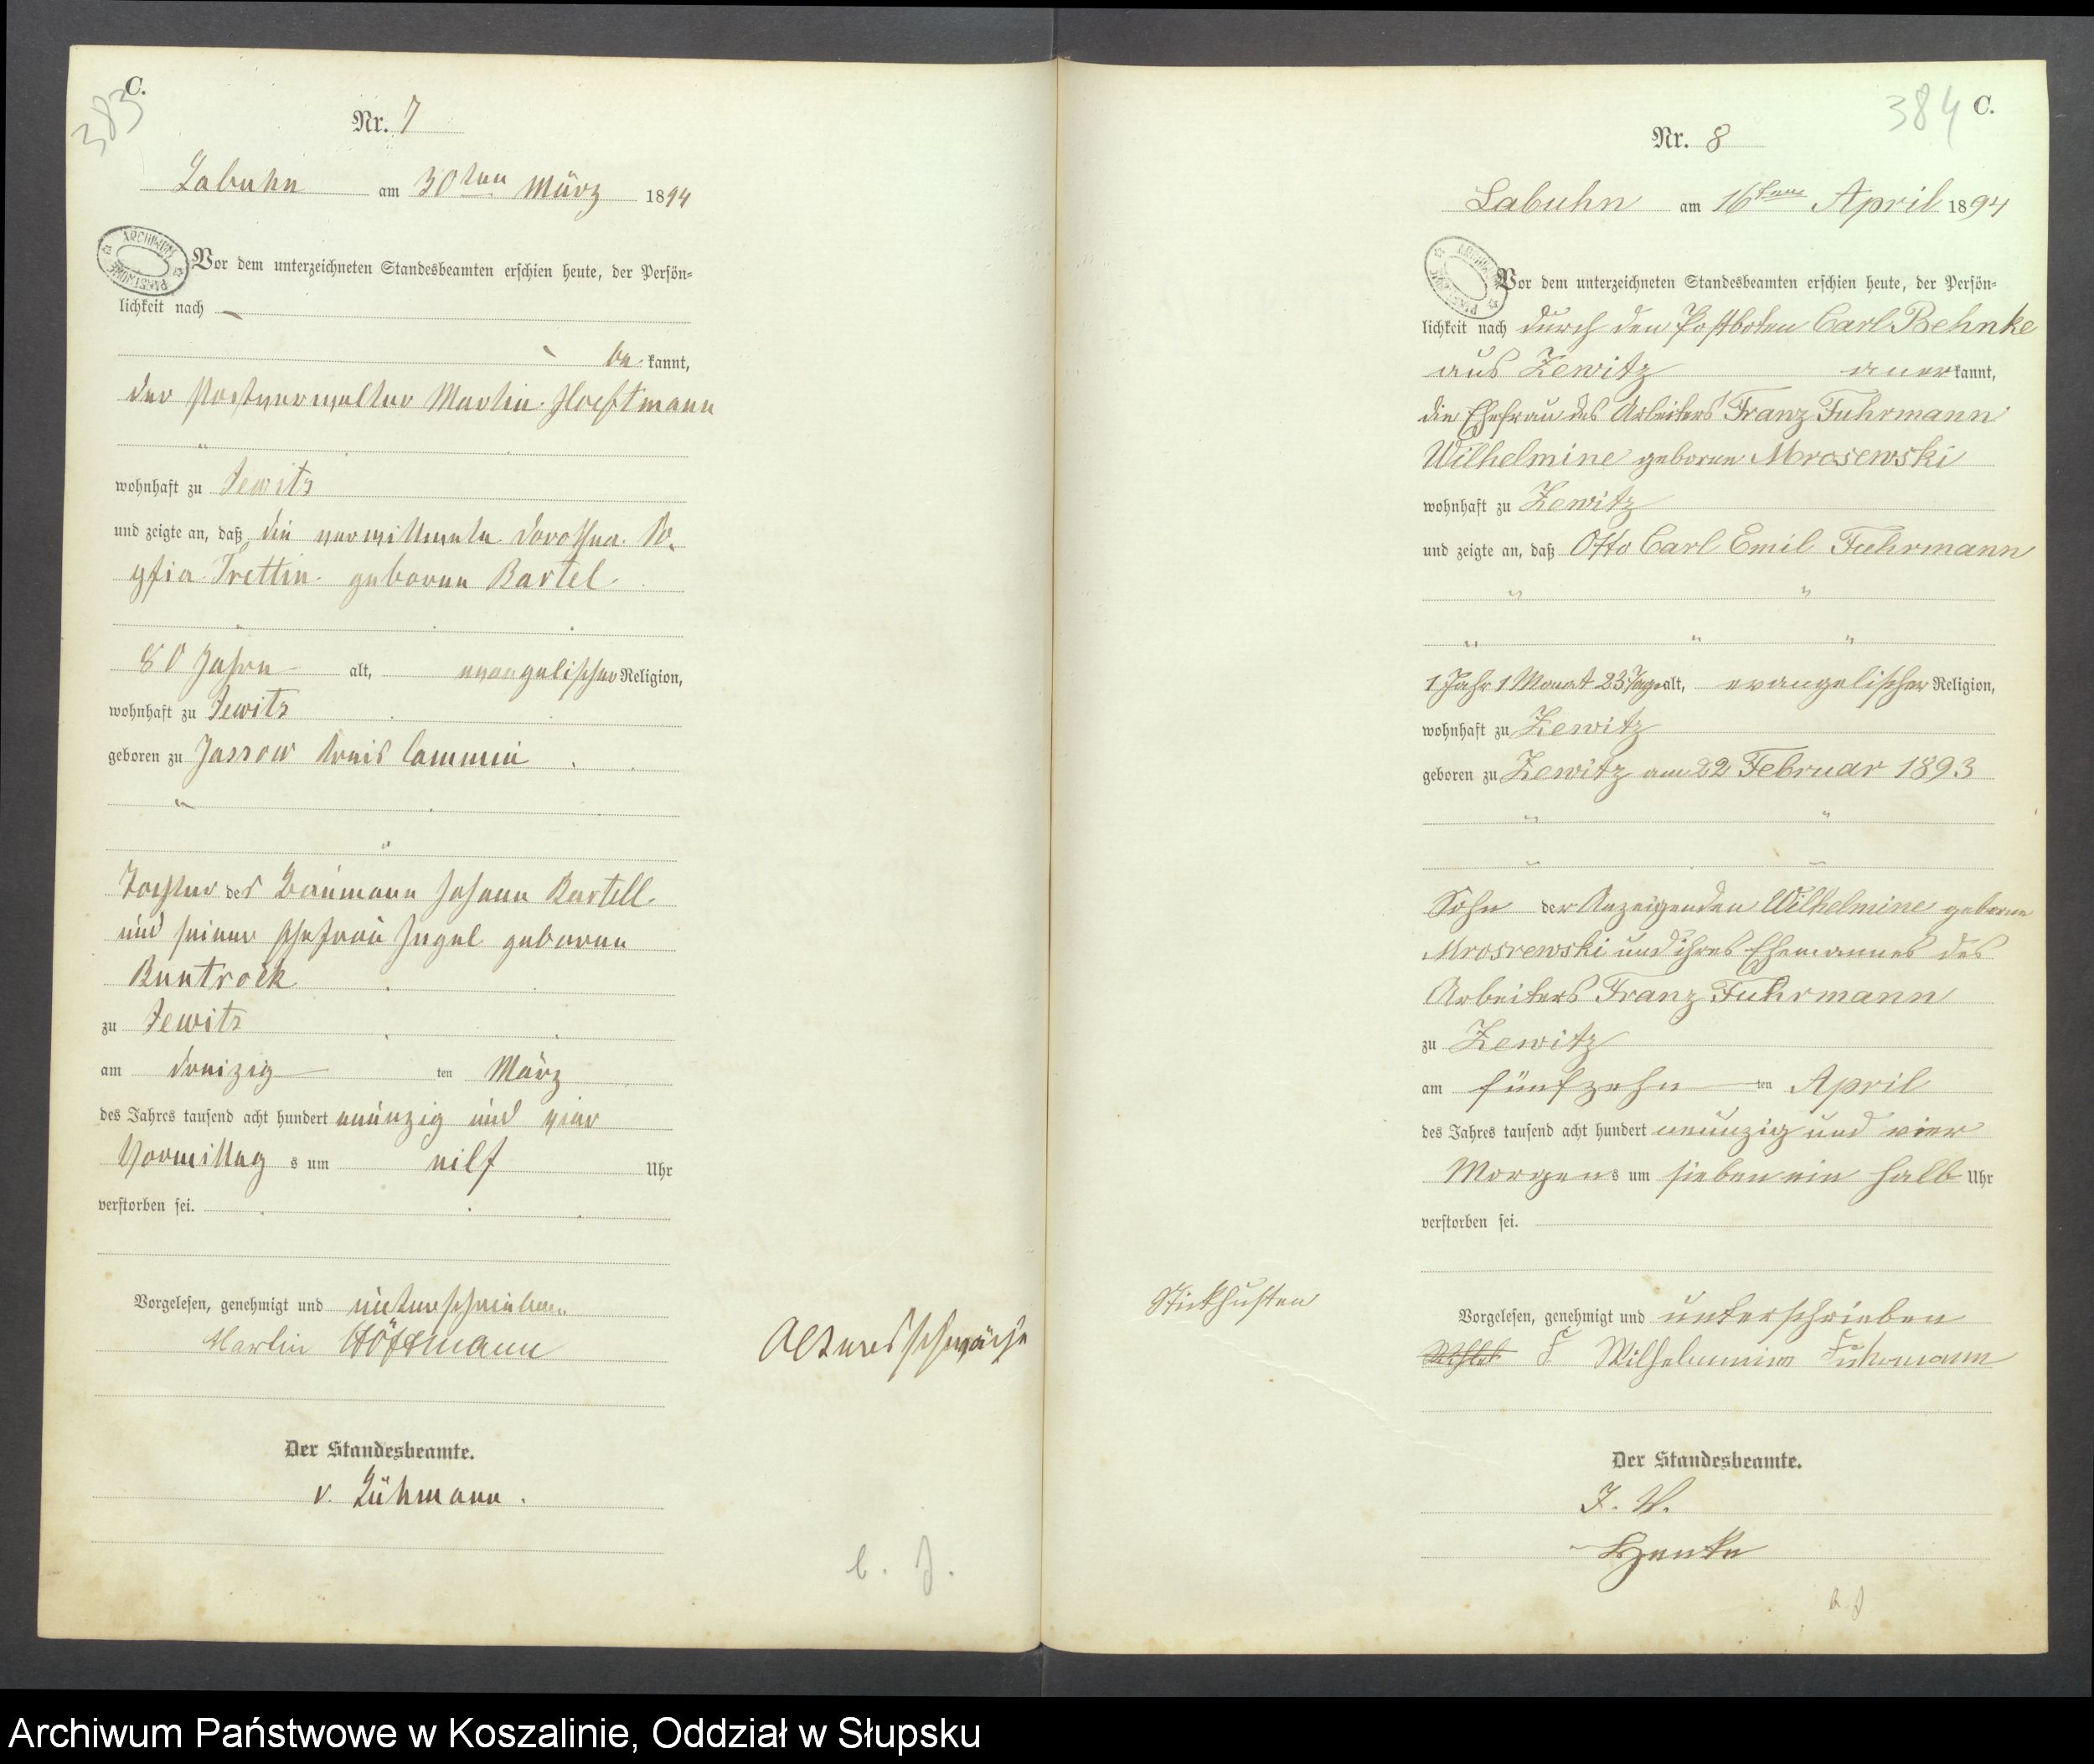 C.
383
Nr. 7
Labuhn am 30ten März 1894
ARCHIWUM PAŃSTWOWE
Vor dem unterzeichneten Standesbeamten erschien heute, der Persön-
lichkeit nach
be kannt,
der Postverwalter Martin Hoeftmann
wohnhaft zu Zewitz
und zeigte an, daß die verwittwete Dorothea So-
phia Trettin geborene Bartel
80 Jahre alt, evangelischer Religion,
wohnhaft zu Zewitz
geboren zu Jassow Kreis Cammin
Tochter des Baumann Johann Bartell
und seiner Ehefrau Engel geborene
Buntrock
zu Zewitz
am dreizig ten März
des Jahres tausend acht hundert neunzig und vier
Vormittag s um eilf Uhr
verstorben sei.
Vorgelesen, genehmigt und unterschrieben
Martin Höftmann
Altersschwäche
Der Standesbeamte.
v. Lühmann.
384 C.
Nr. 8
Labuhn am 16ten April 1894
Vor dem unterzeichneten Standesbeamten erschien heute, der Persön-
lichkeit nach durch den Postboten Carl Behnke
aus Zewitz aner kannt,
die Ehefrau des Arbeiters Franz Fuhrmann
Wilhelmine geborene Mrosewski
wohnhaft zu Zewitz
und zeigte an, daß Otto Carl Emil Fuhrmann
1 Jahr 1 Monat 23 Tage alt, evangelischer Religion,
wohnhaft zu Zewitz
geboren zu Zewitz am 22 Februar 1893
Sohn der Anzeigenden Wilhelmine geborene
Mrosrewski und ihres Ehemannes des
Arbeiters Franz Fuhrmann
zu Zewitz
am fünfzehn ten April
des Jahres tausend acht hundert neunzig und vier
Morgens um sieben ein halb Uhr
verstorben sei.
Stickhusten
Vorgelesen, genehmigt und unterschrieben
F Wilhelmine Fuhrmann
Der Standesbeamte.
I. V.
Archiwum Państwowe w Koszalinie, Oddział w Słupsku